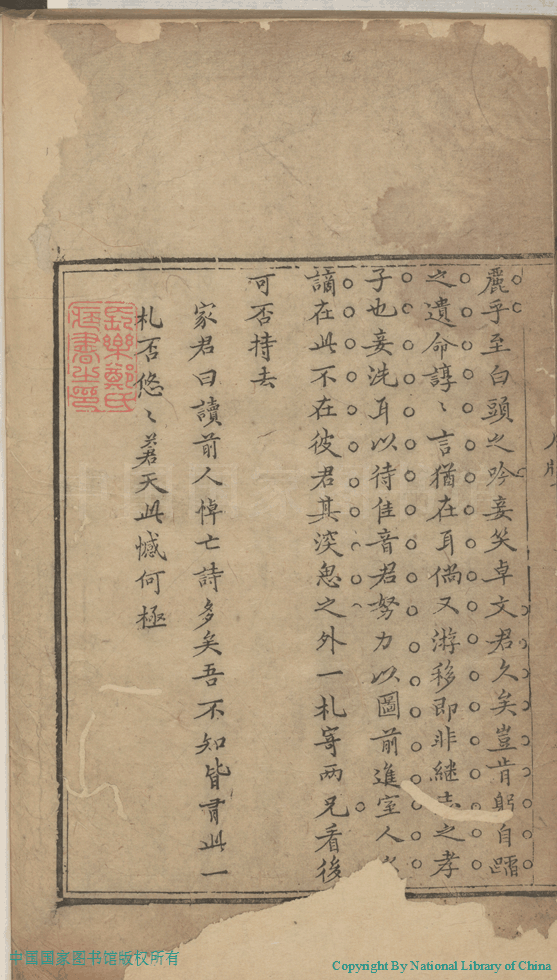 麗乎至白頭之吟妾笑卓文君久矣豈肯躬自蹈
之遺命諄諄言猶在耳倘又游移即非繼志之孝
子也妾洗耳以待佳音君努力以圖前進室人
謫在此不在彼君其深思之外一札寄兩兄看後
可否持去
家君曰讀前人悼亡詩多矣吾不知皆有此一
札否悠悠蒼天此憾何極
長樂鄭氏
藏書之印
中国国家图书馆版权所有
Copyright By National Library of China